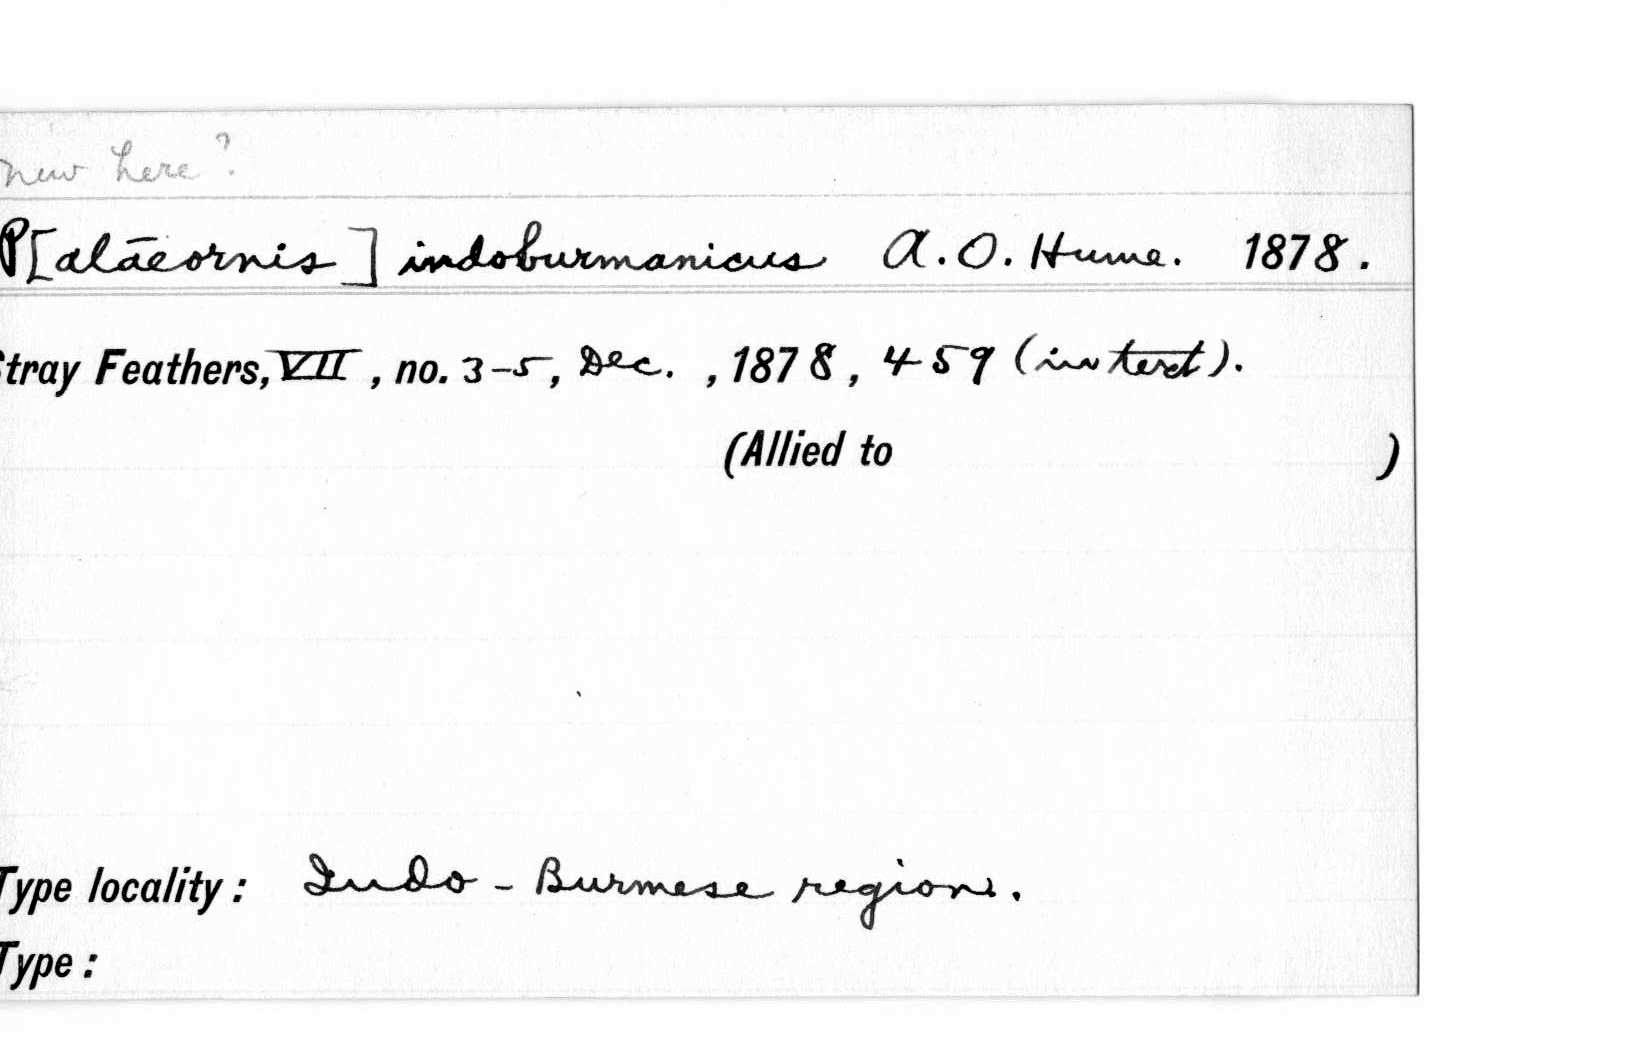 new here?
P[alaeornis] indoburmanicus A. O. Hume. 1878.
Stray Feathers, VII, no. 3-5, Dec. , 1878, 459 (in text).
(Allied to )
Type locality: Indo-Burmese region.
Type: